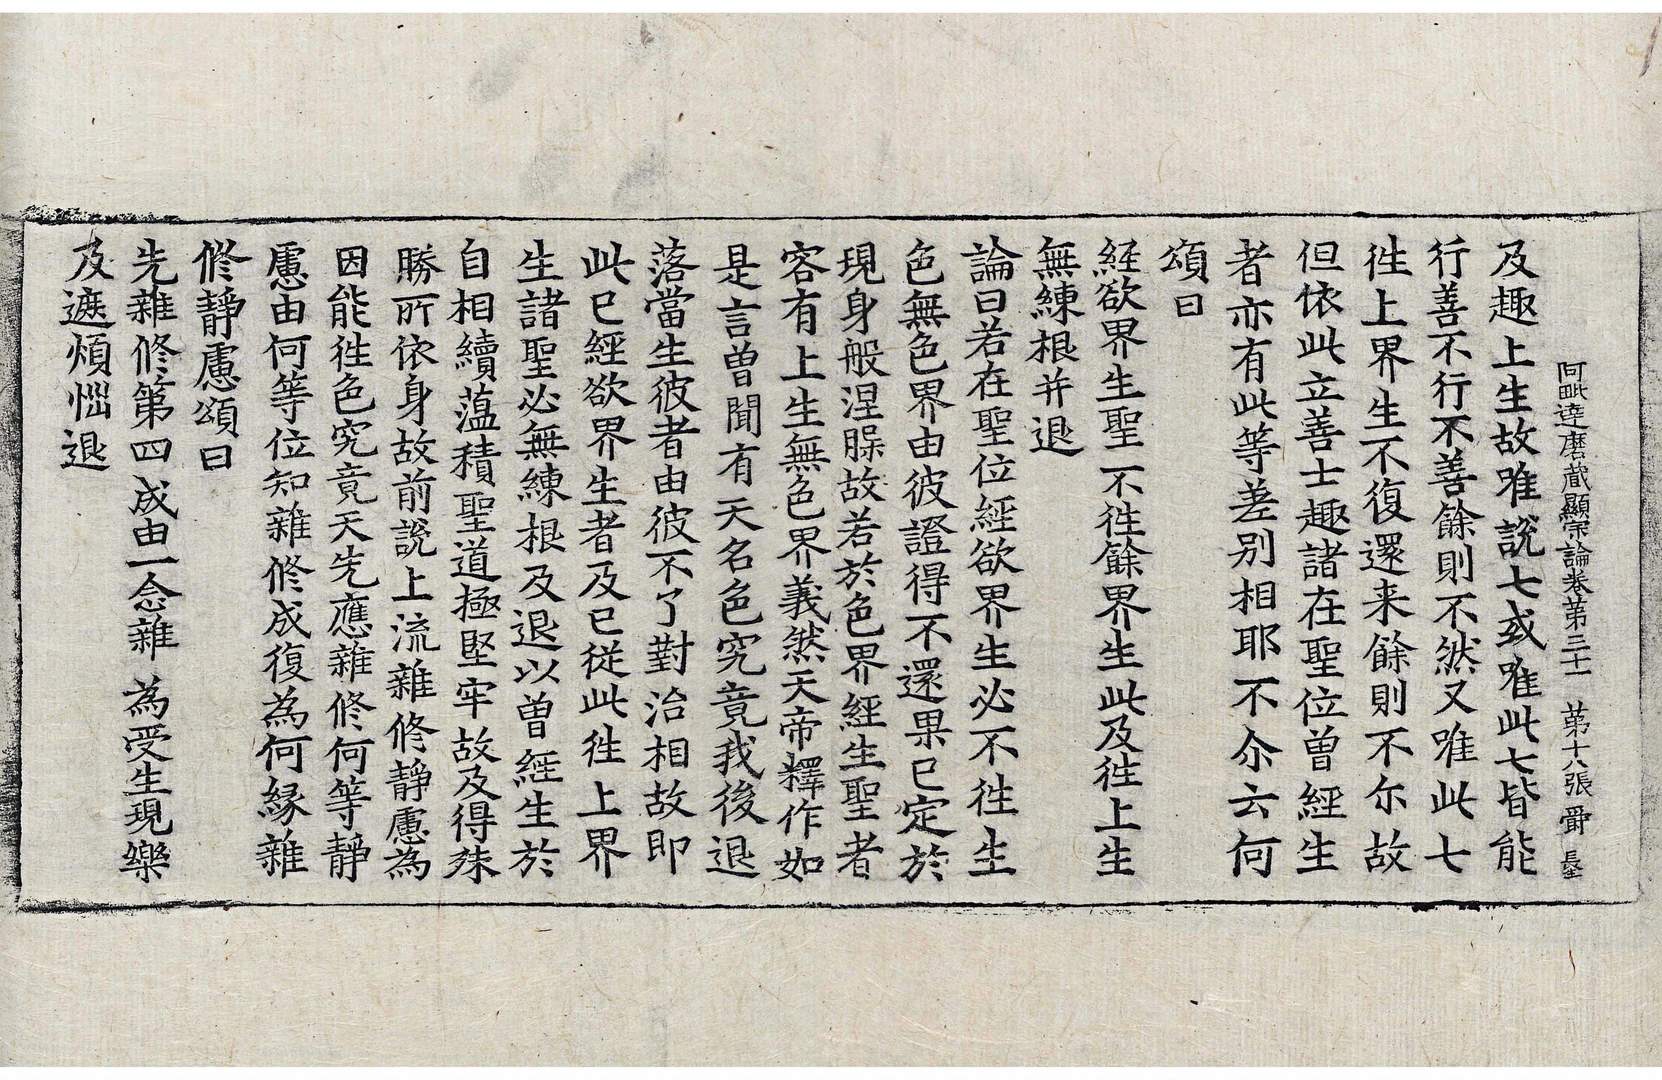 阿毗達磨藏顯宗論卷第三十一　第十八張　爵
及趣上生故唯說七或唯此七皆能
行善不行不善餘則不然又唯此七
徃上界生不復還来餘則不尒故
但依此立善士趣諸在聖位曽經生
者亦有此等差別相耶不尒云何
頌曰
經欲界生聖　不徃餘界生　此及徃上生
無練根并退
論曰若在聖位經欲界生必不徃生
色無色界由彼證得不還果已定於
現身般涅槃故若於色界經生聖者
容有上生無色界義然天帝釋作如
是言曽聞有天名色究竟我後退
落當生彼者由彼不了對治相故即
此已經欲界生者及已從此徃上界
生諸聖必無練根及退以曽經生於
自相續蘊積聖道極堅牢故及得殊
勝所依身故前說上流雜修靜慮為
因能徃色究竟天先應雜修何等靜
慮由何等位知雜修成復為何緣雜
修靜慮頌曰
先雜修第四　成由一念雜　為受生現樂
及遮煩惱退